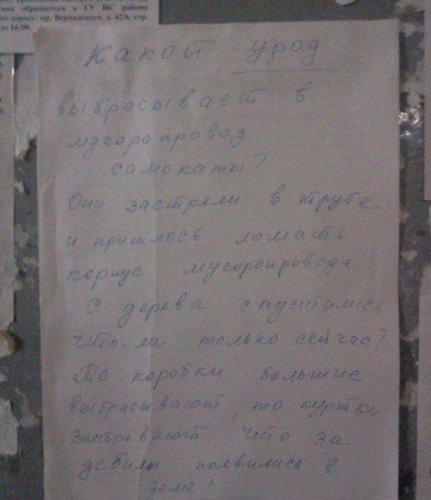 обращаться в ГУ ИС района
пр. Вернадского, д. 62А, стр.
до 16-00.
Какой урод
выбрасывает в
мусоропровод
самокаты?
Они застряли в трубе
и пришлось ломать
корпус мусоропровода
С дерева спустились
что-ли только сейчас?
То коробки большие
выбрасывают, то куртки
застревают. Что за
дебилы появились в
доме!